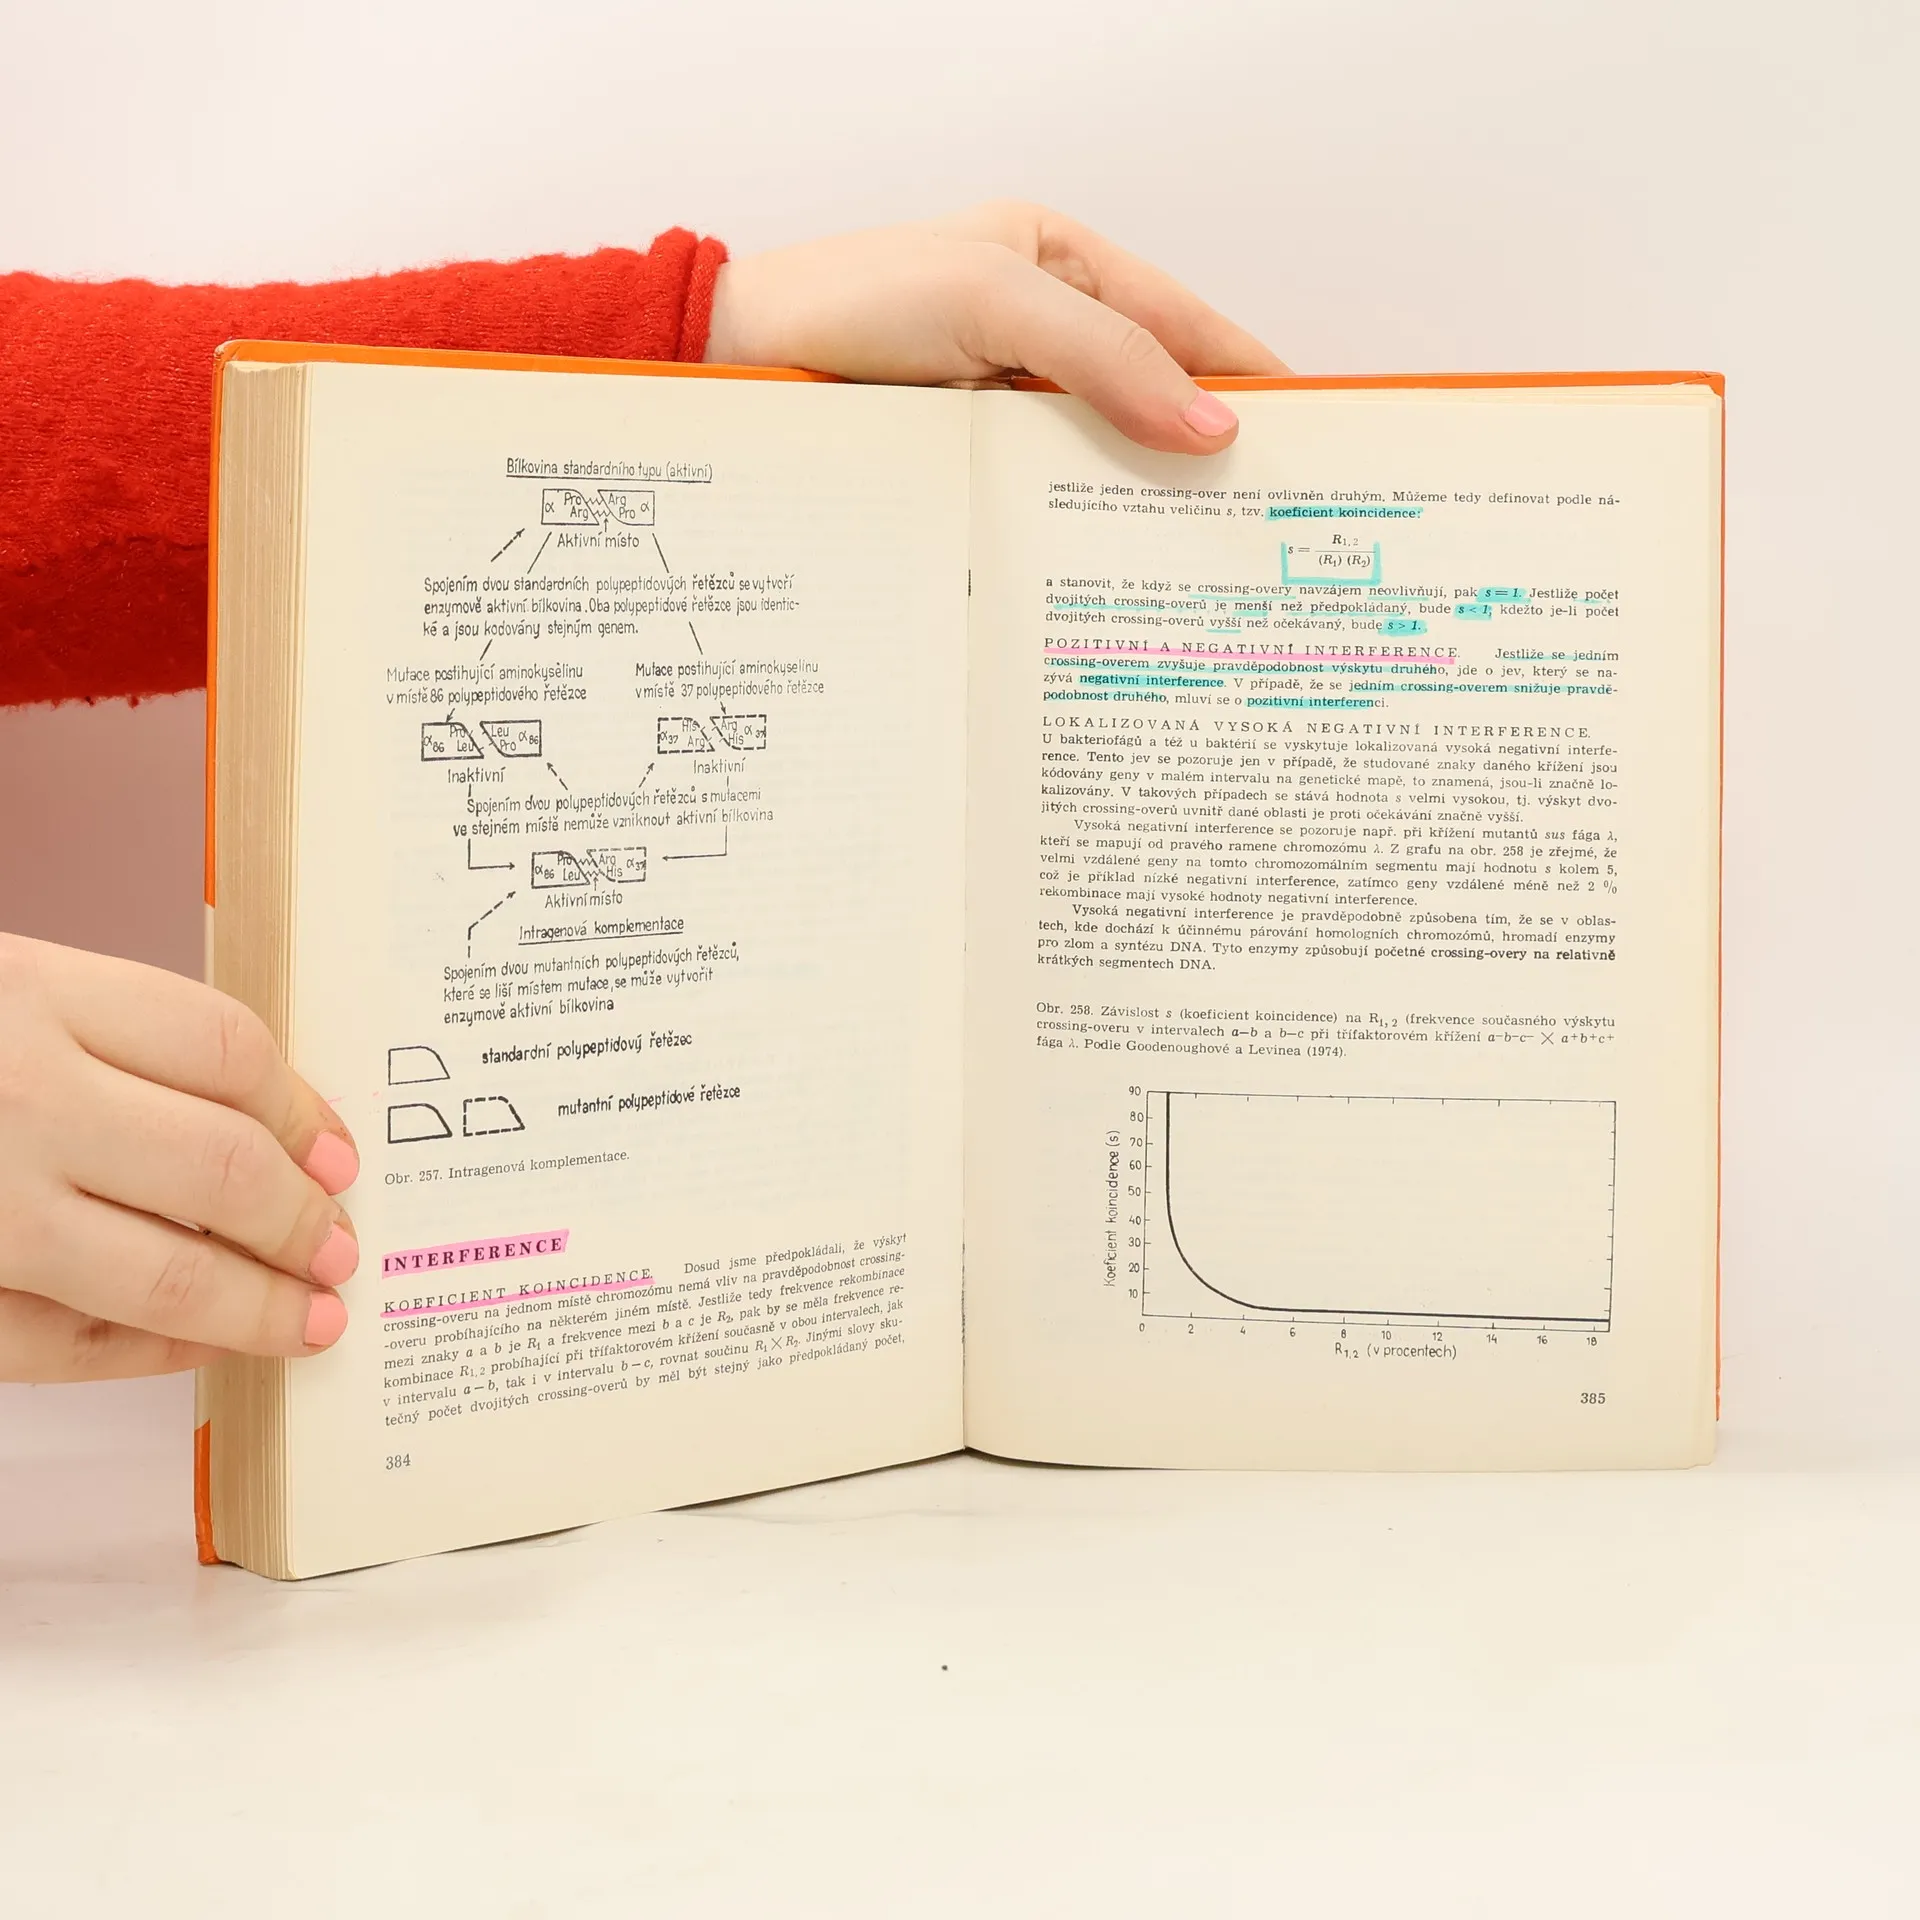 Bílkovina standardního typu (aktivní)
α Pro Arg α
Arg Pro
Aktivní místo
Spojením dvou standardních polypeptidových řetězců se vytvoří
enzymově aktivní bílkovina. Oba polypeptidové řetězce jsou identic-
ké a jsou kodovány stejným genem.
Mutace postihující aminokyselinu
v místě 86 polypeptidového řetězce
Mutace postihující aminokyselinu
v místě 37 polypeptidového řetězce
α86 Pro Leu α86
Leu Pro
α37 His Arg α37
Arg His
Inaktivní
Inaktivní
Spojením dvou polypeptidových řetězců s mutacemi
ve stejném místě nemůže vzniknout aktivní bílkovina
α86 Pro Arg α37
Leu His
Aktivní místo
Intragenová komplementace
Spojením dvou mutantních polypeptidových řetězců,
které se liší místem mutace, se může vytvořit
enzymově aktivní bílkovina
standardní polypeptidový řetězec
mutantní polypeptidové řetězce
Obr. 257. Intragenová komplementace.
INTERFERENCE
KOEFICIENT KOINCIDENCE. Dosud jsme předpokládali, že výskyt
crossing-overu na jednom místě chromozómu nemá vliv na pravděpodobnost crossing-
-overu probíhajícího na některém jiném místě. Jestliže tedy frekvence rekombinace
mezi znaky a a b je R1 a frekvence mezi b a c je R2, pak by se měla frekvence re-
kombinace R1,2 probíhající při třífaktorovém křížení současně v obou intervalech, jak
v intervalu a — b, tak i v intervalu b — c, rovnat součinu R1 × R2. Jinými slovy sku-
tečný počet dvojitých crossing-overů by měl být stejný jako předpokládaný počet,
384
jestliže jeden crossing-over není ovlivněn druhým. Můžeme tedy definovat podle ná-
sledujícího vztahu veličinu s, tzv. koeficient koincidence:
s = R1,2 / (R1) (R2)
a stanovit, že když se crossing-overy navzájem neovlivňují, pak s = 1. Jestliže počet
dvojitých crossing-overů je menší než předpokládaný, bude s < 1, kdežto je-li počet
dvojitých crossing-overů vyšší než očekávaný, bude s > 1.
POZITIVNÍ A NEGATIVNÍ INTERFERENCE. Jestliže se jedním
crossing-overem zvyšuje pravděpodobnost výskytu druhého, jde o jev, který se na-
zývá negativní interference. V případě, že se jedním crossing-overem snižuje pravdě-
podobnost druhého, mluví se o pozitivní interferenci.
LOKALIZOVANÁ VYSOKÁ NEGATIVNÍ INTERFERENCE.
U bakteriofágů a též u baktérií se vyskytuje lokalizovaná vysoká negativní interfe-
rence. Tento jev se pozoruje jen v případě, že studované znaky daného křížení jsou
kódovány geny v malém intervalu na genetické mapě, to znamená, jsou-li značně lo-
kalizovány. V takových případech se stává hodnota s velmi vysokou, tj. výskyt dvo-
jitých crossing-overů uvnitř dané oblasti je proti očekávání značně vyšší.
Vysoká negativní interference se pozoruje např. při křížení mutantů sus fága λ,
kteří se mapují od pravého ramene chromozómu λ. Z grafu na obr. 258 je zřejmé, že
velmi vzdálené geny na tomto chromozomálním segmentu mají hodnotu s kolem 5,
což je příklad nízké negativní interference, zatímco geny vzdálené méně než 2 %
rekombinace mají vysoké hodnoty negativní interference.
Vysoká negativní interference je pravděpodobně způsobena tím, že se v oblas-
tech, kde dochází k účinnému párování homologních chromozómů, hromadí enzymy
pro zlom a syntézu DNA. Tyto enzymy způsobují početné crossing-overy na relativně
krátkých segmentech DNA.
Obr. 258. Závislost s (koeficient koincidence) na R1, 2 (frekvence současného výskytu
crossing-overu v intervalech a—b a b—c při třífaktorovém křížení a-b-c- × a+b+c+
fága λ. Podle Goodenoughové a Levinea (1974).
Koeficient koincidence (s)
90
80
70
60
50
40
30
20
10
0 2 4 6 8 10 12 14 16 18
R1,2 (v procentech)
385